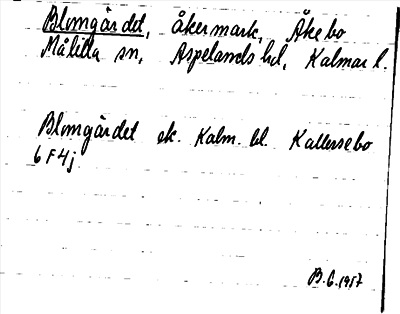 Blomgärdet, åkermark, Åkebo
Målilla sn, Aspelands hd, Kalmar l.
Blomgärdet ek. Kalm. bl. Kallersebo
6 F 4 j
B.G. 1957